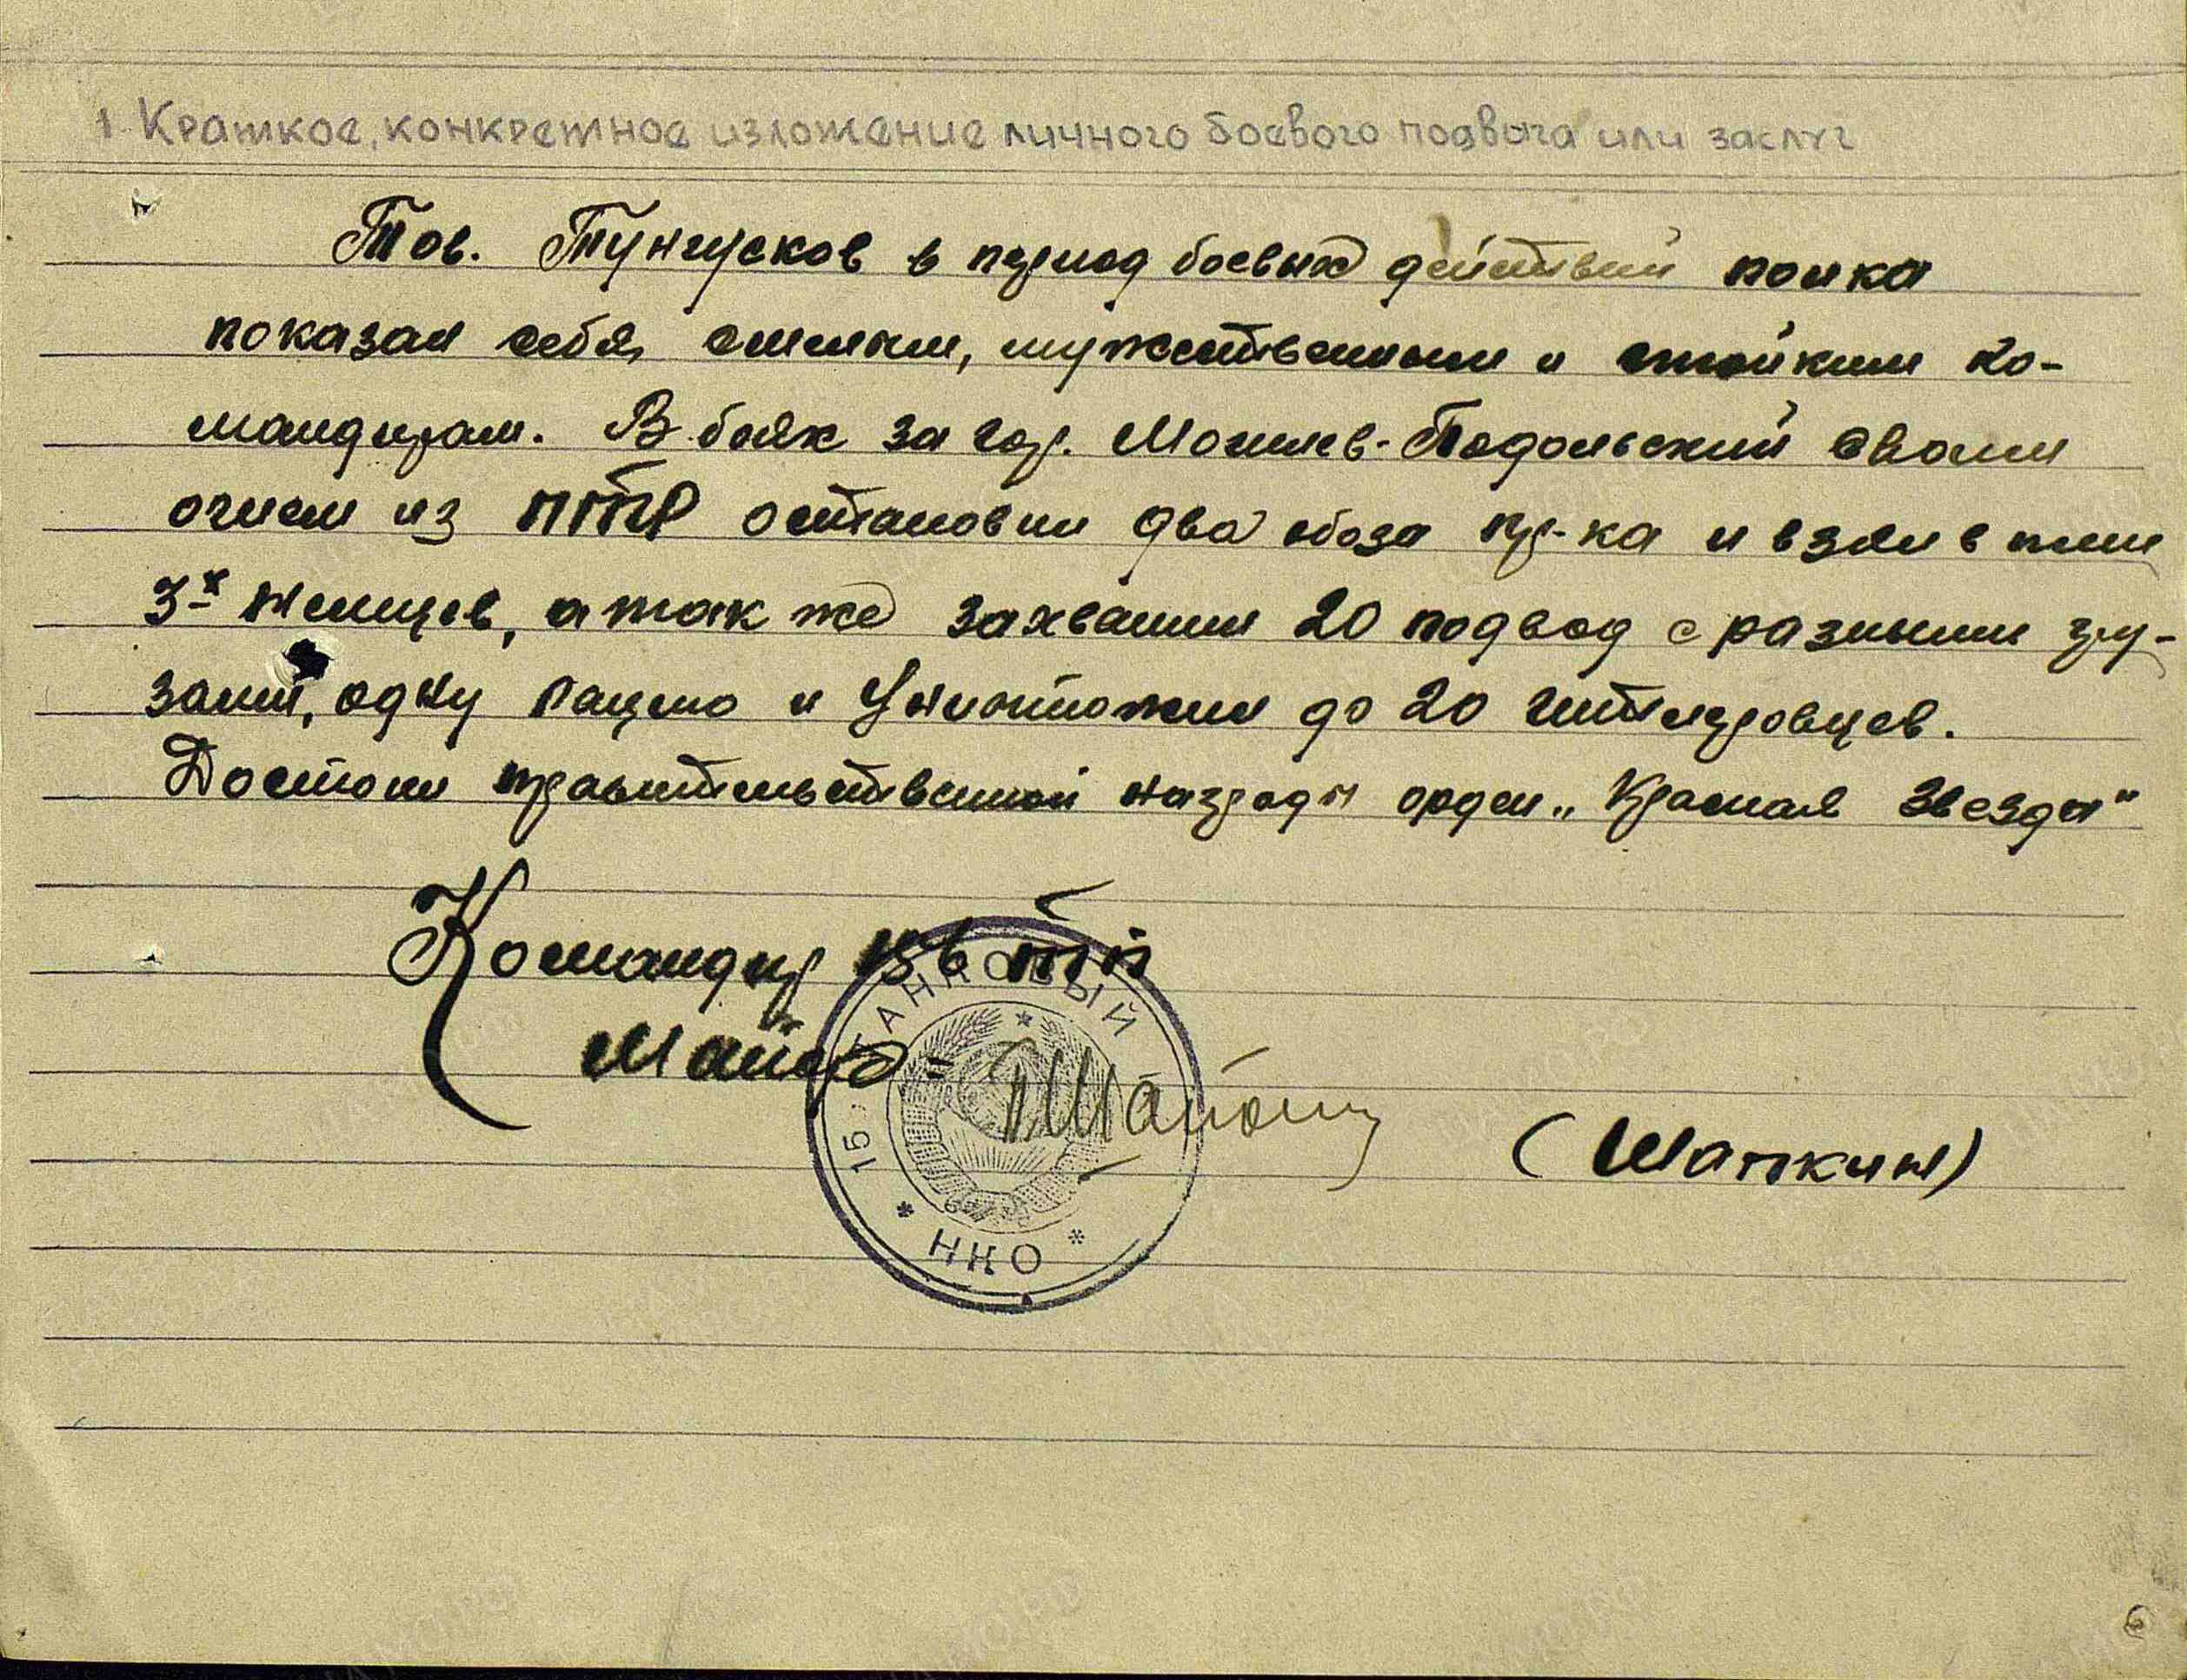 1. Краткое, конкретное изложение личного боевого подвига или заслуг
Тов. Тунгусков в период боевых действий полка
показал себя смелым, мужественным и стойким ко-
мандиром. В боях за гор. Могилев-Подольский своим
огнем из ПТР остановил два обоза пр-ка и взял в плен
3-х немцев, а так же захватил 20 подвод с разными гру-
зами, одну рацию и уничтожил до 20 гитлеровцев.
Достоин правительственной награды орден „Красная звезда"
Командир тп
Майор =
(Шапкин)
ТАНКОВЫЙ
15
* НКО *